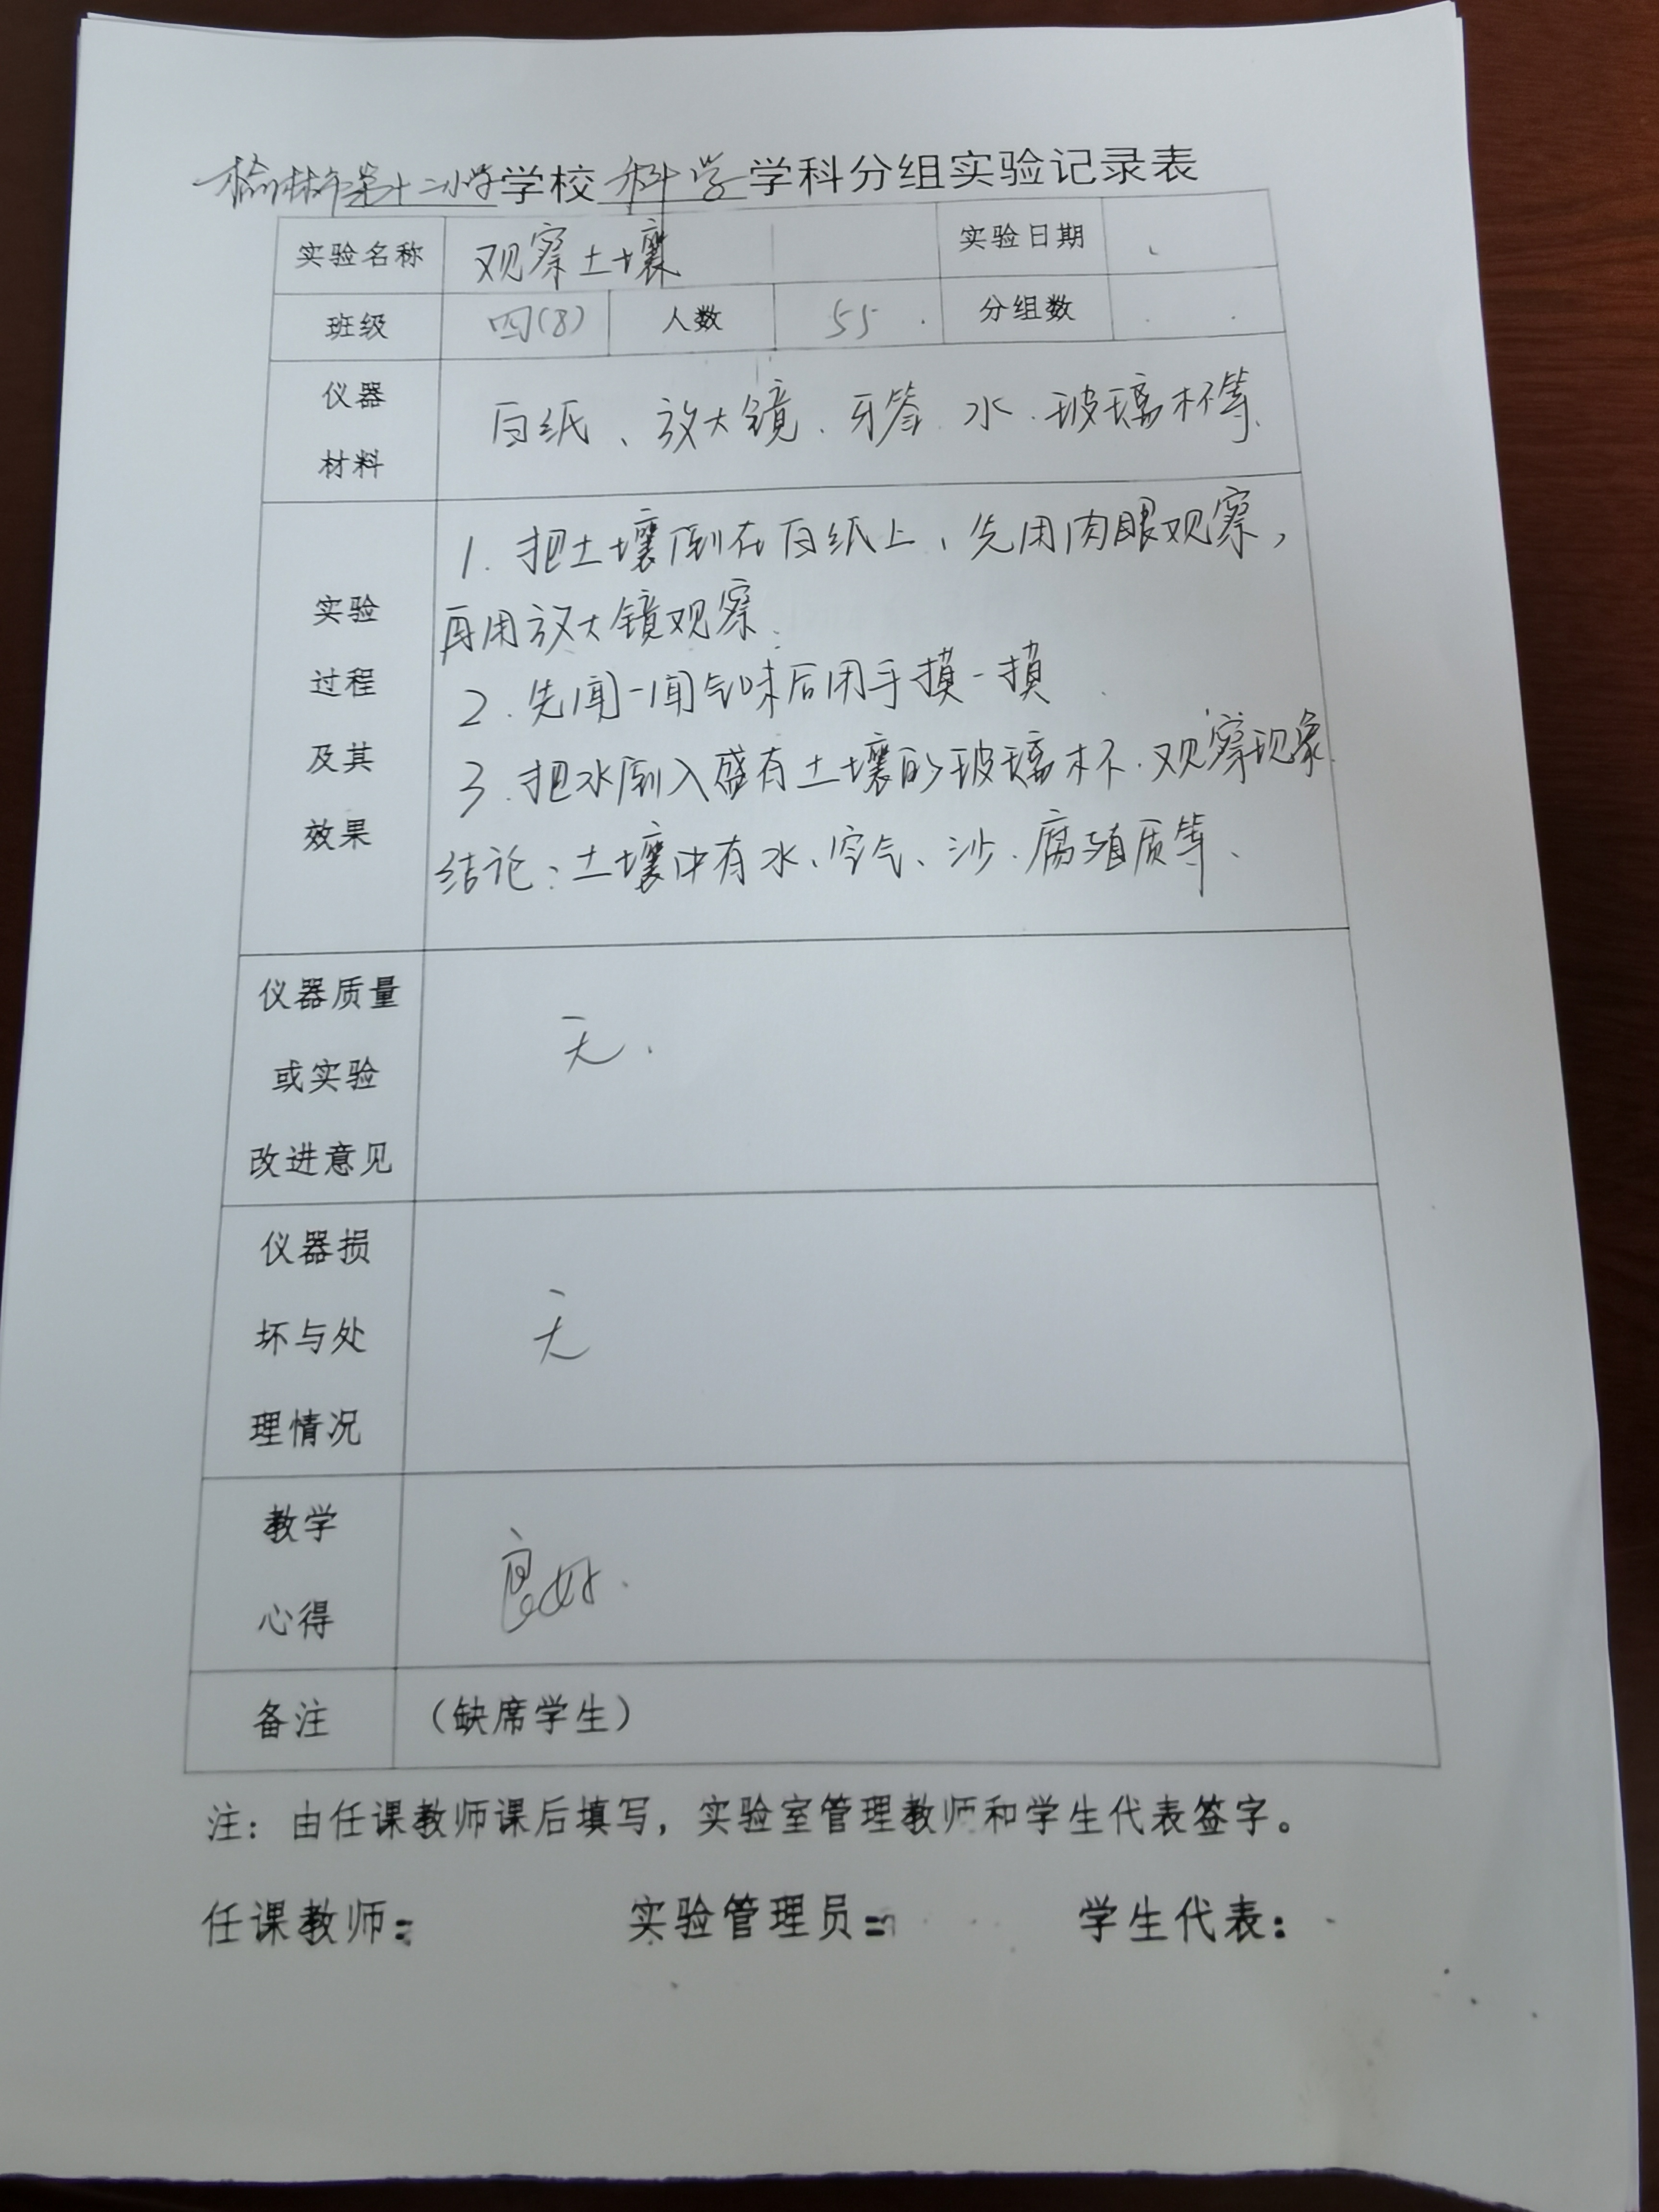 榆林市第十二小学学校科学学科分组实验记录表
实验名称 观察土壤 实验日期
班级 四(8) 人数 55 分组数
仪器
材料
白纸、放大镜、牙签、水、玻璃杯等.
实验
过程
及其
效果
1. 把土壤倒在白纸上、先用肉眼观察，
再用放大镜观察.
2. 先闻一闻气味后用手摸一摸
3. 把水倒入盛有土壤的玻璃杯.观察现象
结论：土壤中有水、空气、沙、腐殖质等、
仪器质量
或实验
改进意见
无.
仪器损
坏与处
理情况
无
教学
心得
良好.
备注 （缺席学生）
注：由任课教师课后填写，实验室管理教师和学生代表签字。
任课教师： 实验管理员： 学生代表：